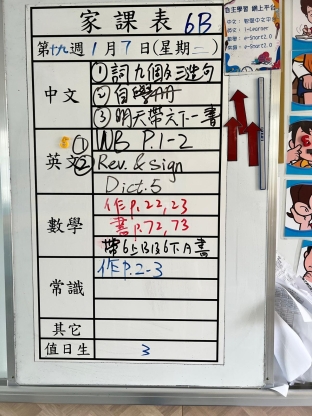 家課表 6B
第十九週 1月7日(星期二)
中文
①詞九個及三造句
②自學冊
③明天帶六下一書
英文
① WB P.1-2
② Rev. & sign
Dict.5
數學
作P.22,23
書P.72,73
帶6上B及6下A書
常識
作P.2-3
其它
值日生
3
自主學習 網上平台